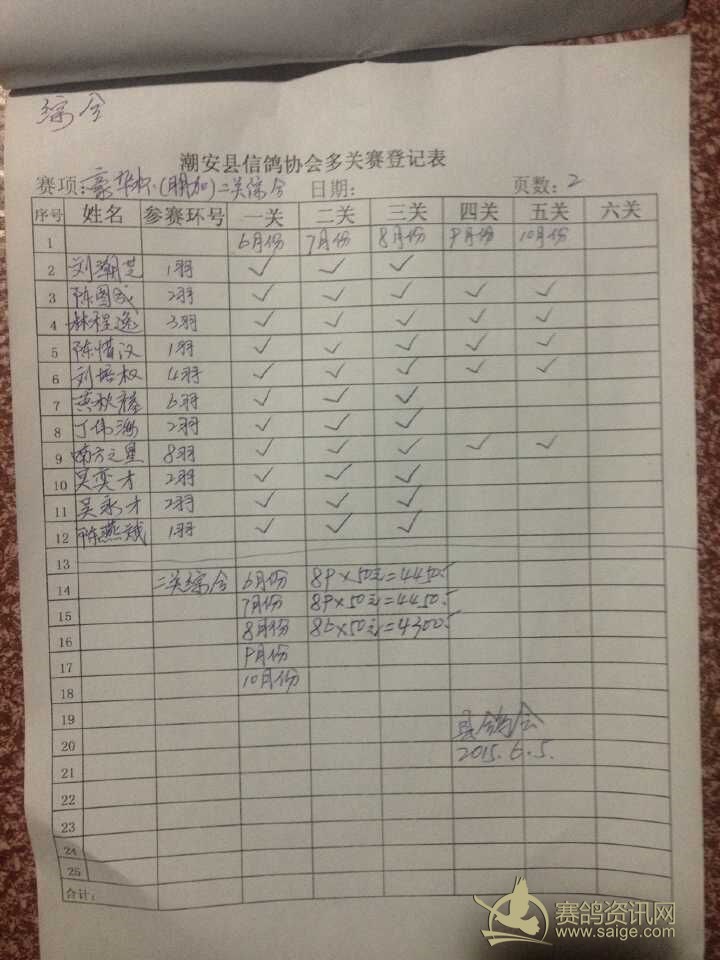 综合
潮安县信鸽协会多关赛登记表
赛项:豪华杯(附加)二关综合 日期: 页数:2
序号 姓名 参赛环号 一关 二关 三关 四关 五关 六关
1 6月份 7月份 8月份 9月份 10月份
2 刘潮芝 1羽 ✓ ✓ ✓
3 陈图武 2羽 ✓ ✓ ✓ ✓ ✓
4 林程逸 3羽 ✓ ✓ ✓ ✓ ✓
5 陈惜汉 1羽 ✓ ✓ ✓ ✓ ✓
6 刘培权 4羽 ✓ ✓ ✓ ✓ ✓
7 黄秋 6羽 ✓ ✓ ✓
8 丁伟海 2羽 ✓ ✓ ✓
9 南方之星 8羽 ✓ ✓ ✓ ✓ ✓
10 吴奕才 2羽 ✓ ✓ ✓
11 吴永才 2羽 ✓ ✓ ✓
12 陈燕 1羽 ✓ ✓ ✓
13
14 二关综合 6月份 89×50元=4450元
15 7月份 89×50元=4450元
16 8月份 86×50元=4300元
17 9月份
18 10月份
19
20 县鸽会
21 2015.6.5.
22
23
24
25
合计:
赛鸽资讯网
www.saige.com